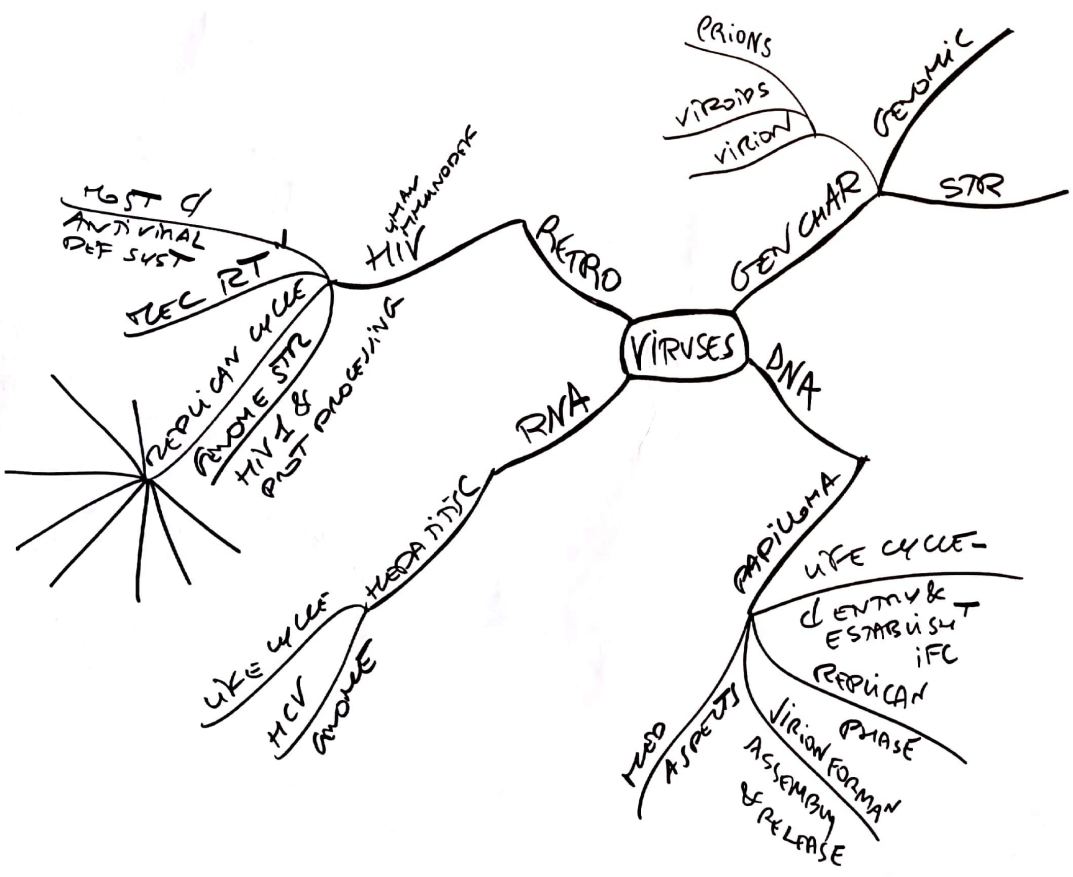 PRIONS
VIROIDS
VIRION
GENOMIC
STR
GEN CHAR
VIRUSES
RETRO
HIV
HUMAN
IMMUNODEF
HOST C/
ANTIVIRAL
DEF SYST
MEC RT
REPLICAN CYCLE
GENOME STR
HIV1 &
PROT PROCESSING
RNA
HEPATITIS C
LIFE CYCLE
HCV
GNOME
DNA
PAPILLOMA
LIFE CYCLE-
C/ ENTRY &
ESTABLISHT
iFC
REPLICAN
PHASE
VIRION FORMAN
ASSEMBLY
& RELEASE
MED
ASPECTS